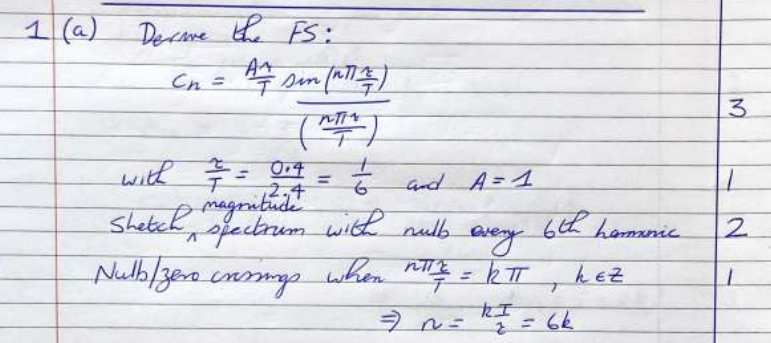 1 (a) Derive the FS:
Cn = Aτ/T sin(nπ τ/T) / (nπτ/T)
3
with τ/T = 0.4/2.4 = 1/6 and A = 1
1
magnitude
Sketch ^ spectrum with nulls every 6th harmonic
2
Nulls/zero crossings when nπτ/T = kπ , k∈Z
1
⇒ n = kT/τ = 6k